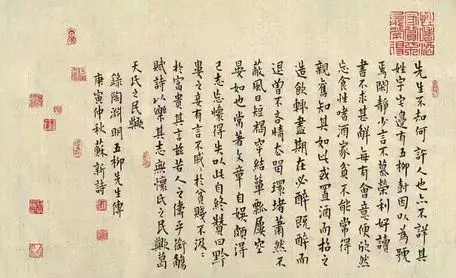 先生不知何許人也亦不詳其
姓字宅邊有五柳樹因以為號
焉閑靜少言不慕榮利好讀
書不求甚解每有會意便欣然
忘食性嗜酒家貧不能常得
親舊知其如此或置酒而招之
造飲輒盡期在必醉既醉而
退曾不吝情去留環堵蕭然不
蔽風日短褐穿結簞瓢屢空
晏如也常著文章自娛頗
己志忘懷得失以此自終贊曰黔
婁之妻有言不戚々於貧賤不汲々
於富貴其言茲若人之儔乎銜觴
賦詩以樂其志無懷氏之民歟葛
天氏之民歟
錄陶淵明五柳先生傳
庚寅仲秋蘇新詩